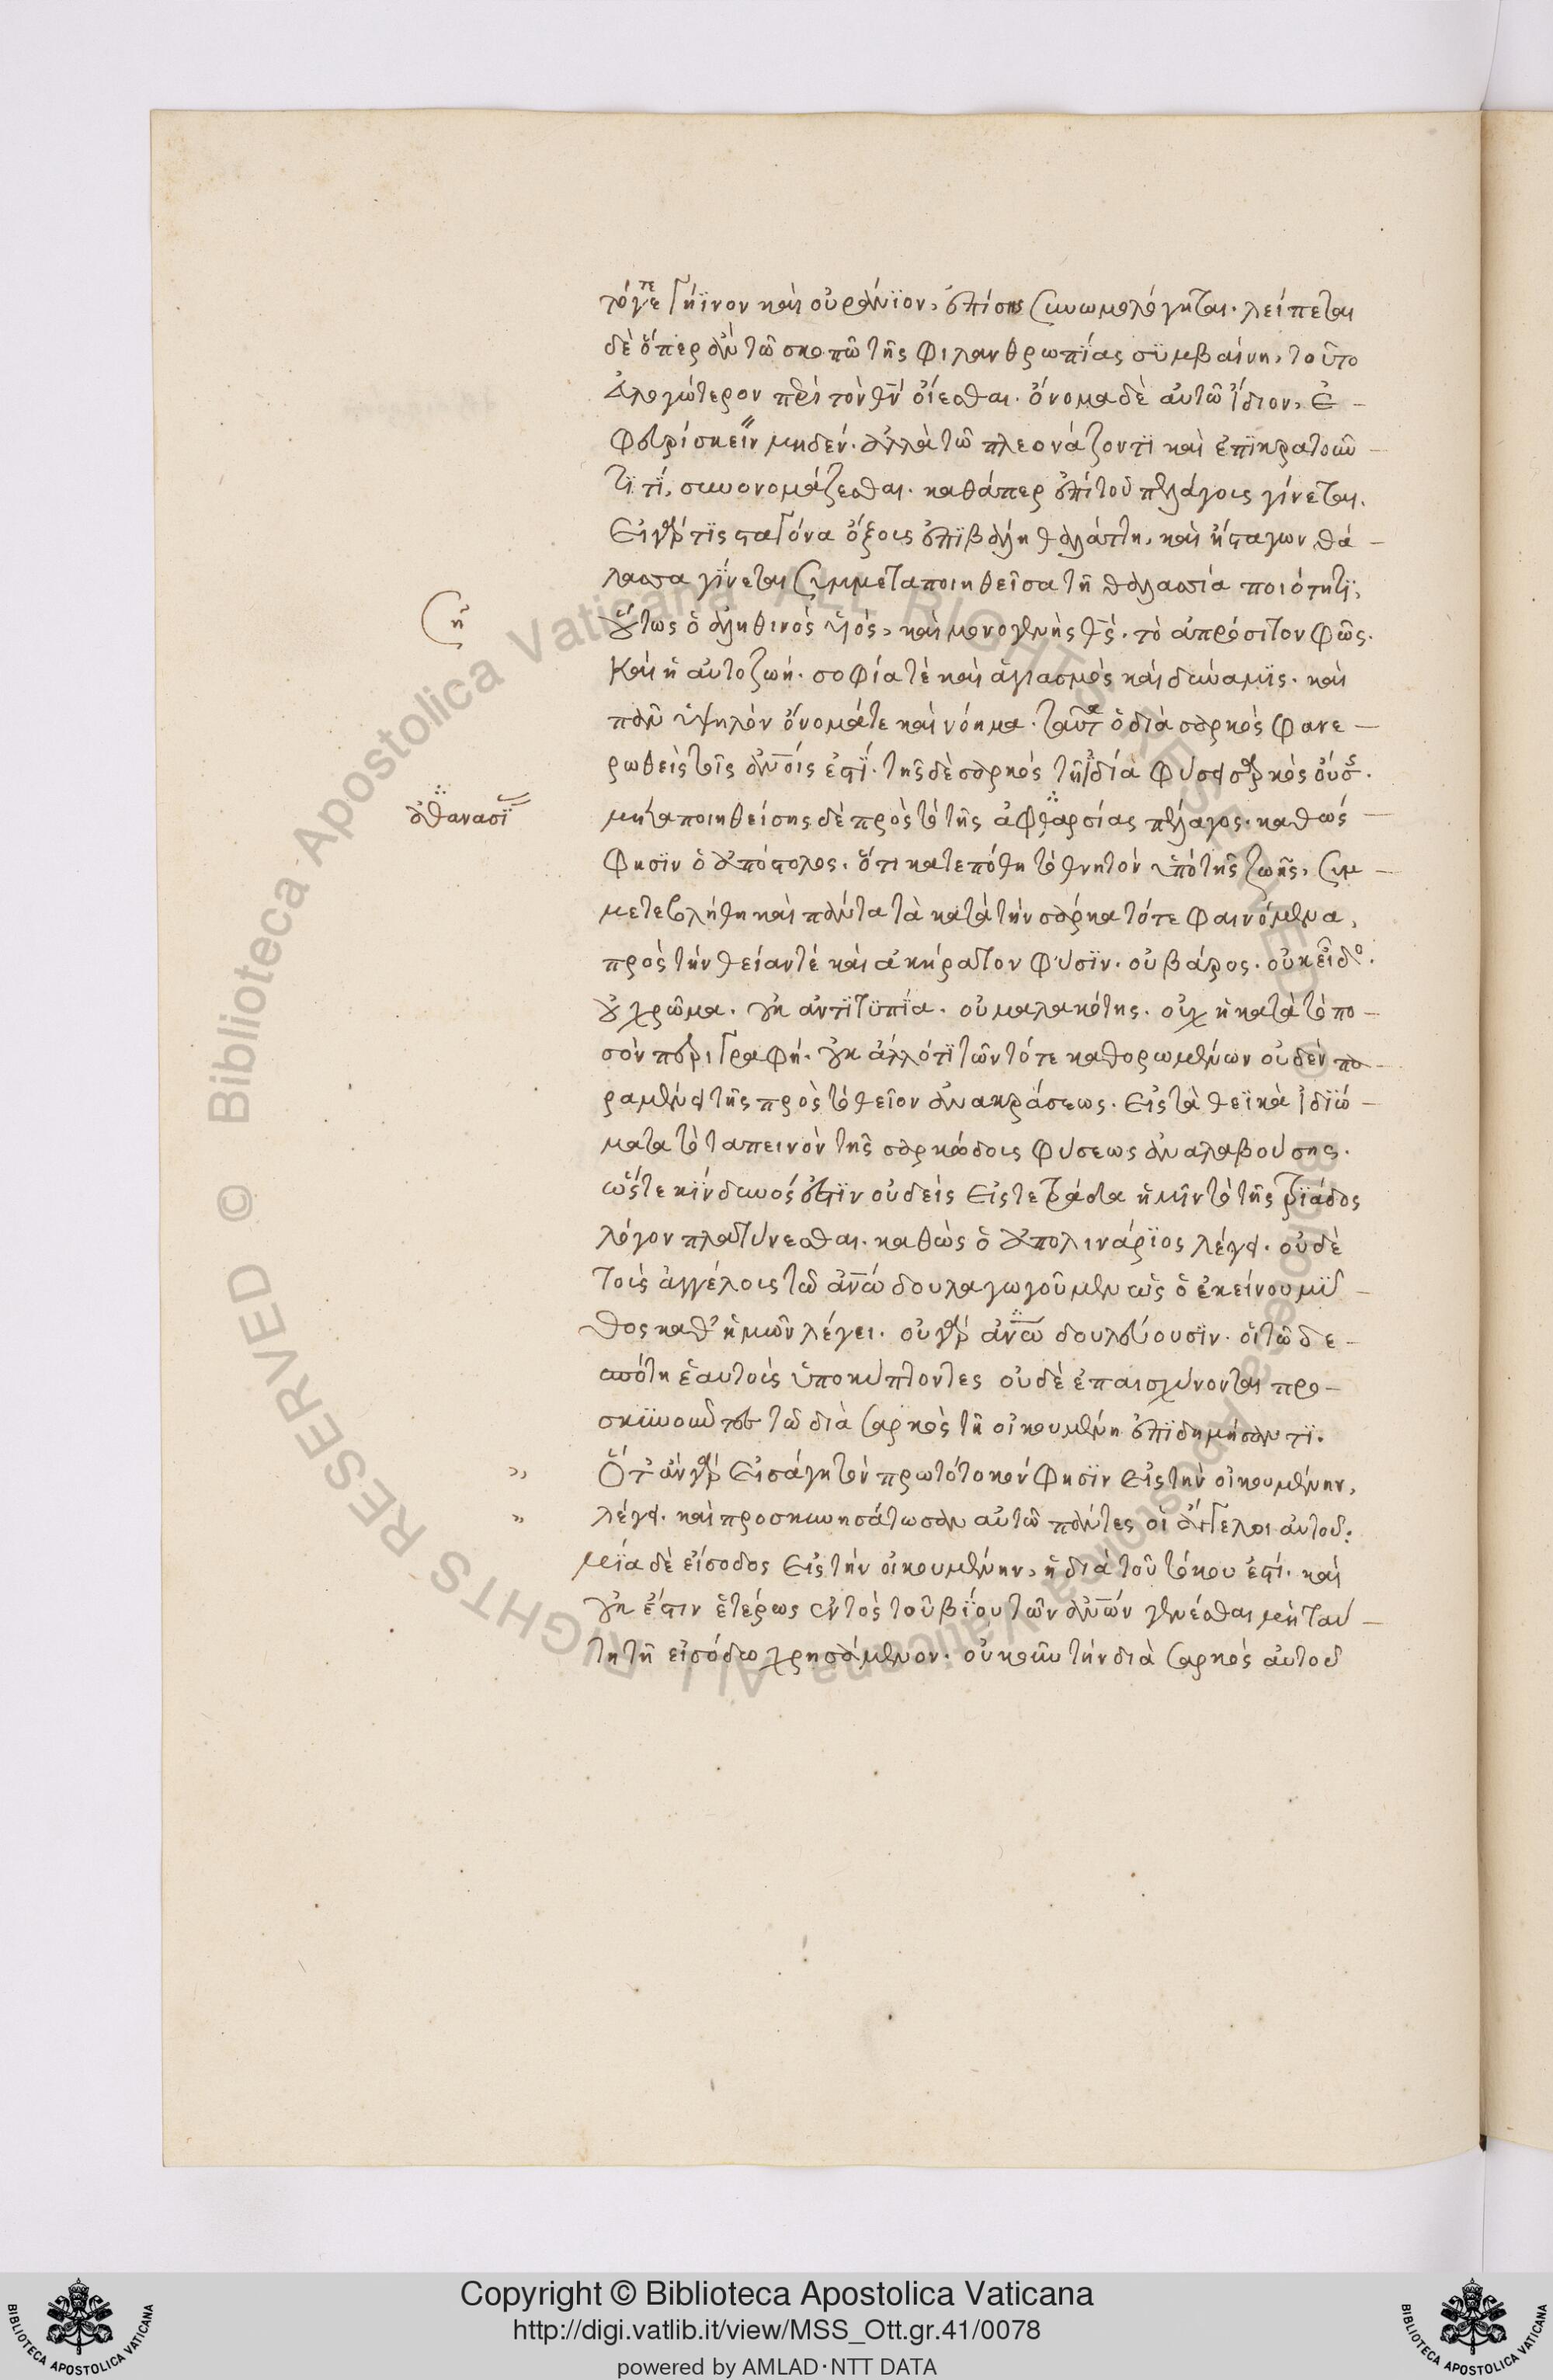 τόγε γήϊνον καὶ οὐράνϊον, ἐπίσης συνωμολόγηται. λείπεται
δὲ ὅπερ ἐν τῶ σκοπῶ τῆς φιλανθρωπίας συμβαίνη, τοῦτο
ἀλογώτερον περὶ τὸν θ̅ν̅ οἴεσθαι. ὄνομα δὲ αὐτῶ ἴδιον, ἐ-
φευρίσκειν μηδέν. ἀλλὰ τῶ πλεονάζοντϊ καὶ ἐπϊκρατοῦν-
τϊ τϊ, συνονομάζεσθαι. καθάπερ ἐπὶ τοῦ πελάγους γίνεται.
Εἰ γάρ τϊς σταγόνα ὄξους ἐπϊβάλη θαλάττη, καὶ ἡ σταγων θά-
λασσα γϊνεται συμμεταποιηθεῖσα τῆ θαλασσία ποιότητϊ,
οὕτως ὁ ἀληθινὸς υἱός, καὶ μονογενὴς θ̅ς̅. τὸ ἀπρόσιτον φῶς.
Καὶ ἡ αὐτοζωή. σοφία τὲ καὶ ἁγιασμὸς καὶ δύναμϊς. καὶ
πᾶν ὑψηλὸν ὄνομά τε καὶ νόημα. ταῦτα ὁ διὰ σαρκὸς φανε-
ρωθεὶς τοῖς ἀν̅οις ἐστϊ. τῆς δὲ σαρκὸς τῆ ἰδία φύσει σαρκὸς οὔσης.
μεταποιηθείσης δὲ πρὸς τὸ τῆς ἀφθαρσίας πέλαγος. καθώς
φησϊν ὁ ἀπόστολος. ὅτι κατεπόθη τὸ θνητὸν ὑπὸ τῆς ζωῆς, συμ-
μετεβλήθη καὶ πάντα τὰ κατὰ τὴν σάρκα τότε φαινόμενα,
πρὸς τὴν θείαν τὲ καὶ ἀκήρατον φύσϊν. οὐ βάρος. οὐκ εἶδος.
οὐ χρῶμα. οὐκ ἀντϊτυπϊα. οὐ μαλακότης. οὐχ ἡ κατὰ τὸ πο-
σὸν περιγραφή. οὐκ ἄλλό τϊ τῶν τότε καθορωμένων οὐδὲν πα-
ραμένει τῆς πρὸς τὸ θεῖον ἀνακράσεως. Εἰς τὰ θεϊκὰ ἰδϊώ-
ματα τὸ ταπεινὸν τῆς σαρκώδους φύσεως ἀναλαβούσης.
ὥστε κϊνδυνός ἐστϊν οὐδεὶς εἰς τετράδα ἡμῖν τὸ τῆς τρϊάδος
λόγον πλατύνεσθαι. καθὼς ὁ ἀπολινάρϊος λέγει. οὐδὲ
τοὺς ἀγγέλους τῶ ἀν̅ω δουλαγωγοῦμεν ὡς ὁ ἐκείνου μῦ-
θος καθ' ἡμῶν λέγει. οὐ γὰρ ἀν̅ω δουλεύουσϊν. οἱ τῶ δε-
σπότη ἑαυτοὺς ὑποκύπτοντες οὐδὲ ἐπαισχύνονται προ-
σκυνοῦντες τῶ διὰ σαρκὸς τῆ οἰκουμένη ἐπϊδημήσαντϊ.
Ὅτ' ἀν γὰρ εἰσάγη τὸν πρωτότοκον φησϊν εἰς τὴν οἰκουμένην,
λέγει. καὶ προσκυνησάτωσαν αὐτῶ πάντες οἱ ἄγγελοι αὐτοῦ:
μϊα δὲ εἴσοδος εἰς τὴν οἰκουμένην, ἡ διὰ τοῦ τόκου ἐστί. καὶ
οὐκ ἔστιν ἑτέρως ἐντὸς τοῦ βϊου τῶν ἀν̅ων γενέσθαι μὴ ταύ-
τη τῆ εἰσόδω χρησάμενον. οὐκοῦν τὴν διὰ σαρκὸς αὐτοῦ
ἀθανασϊ
Copyright © Biblioteca Apostolica Vaticana
http://digi.vatlib.it/view/MSS_Ott.gr.41/0078
powered by AMLAD·NTT DATA
BIBLIOTECA APOSTOLICA VATICANA
BIBLIOTECA APOSTOLICA VATICANA
© Biblioteca Apostolica Vaticana ALL RIGHTS RESERVED
© Biblioteca Apostolica Vaticana ALL RIGHTS RESERVED